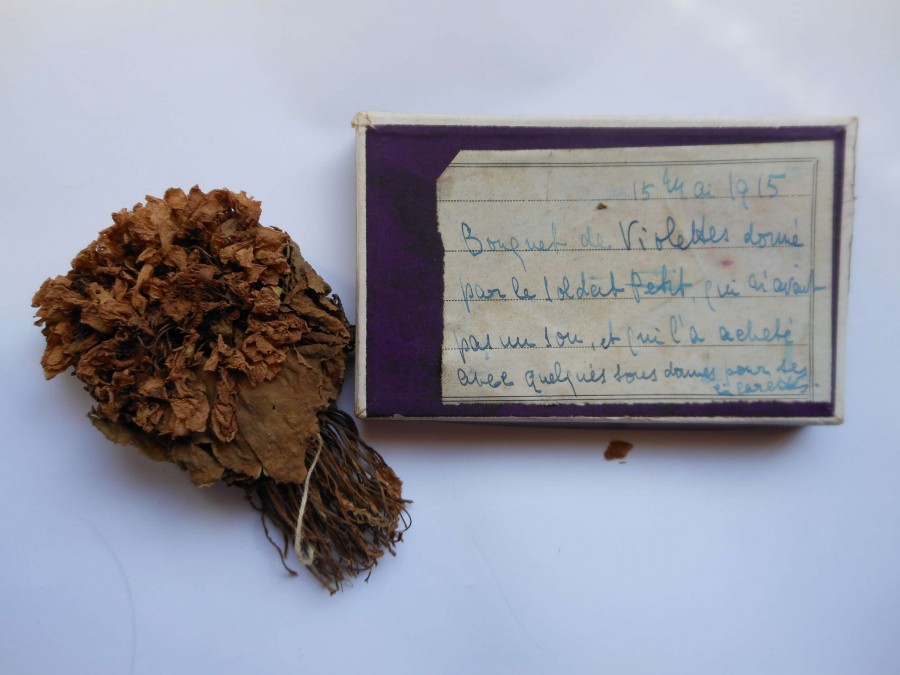 15 Mai 1915
Bouquet de Violettes donné
par le soldat Petit, qui n'avait
pas un sou, et qui l'a acheté
avec quelques sous donnés pour ses
cigarettes.